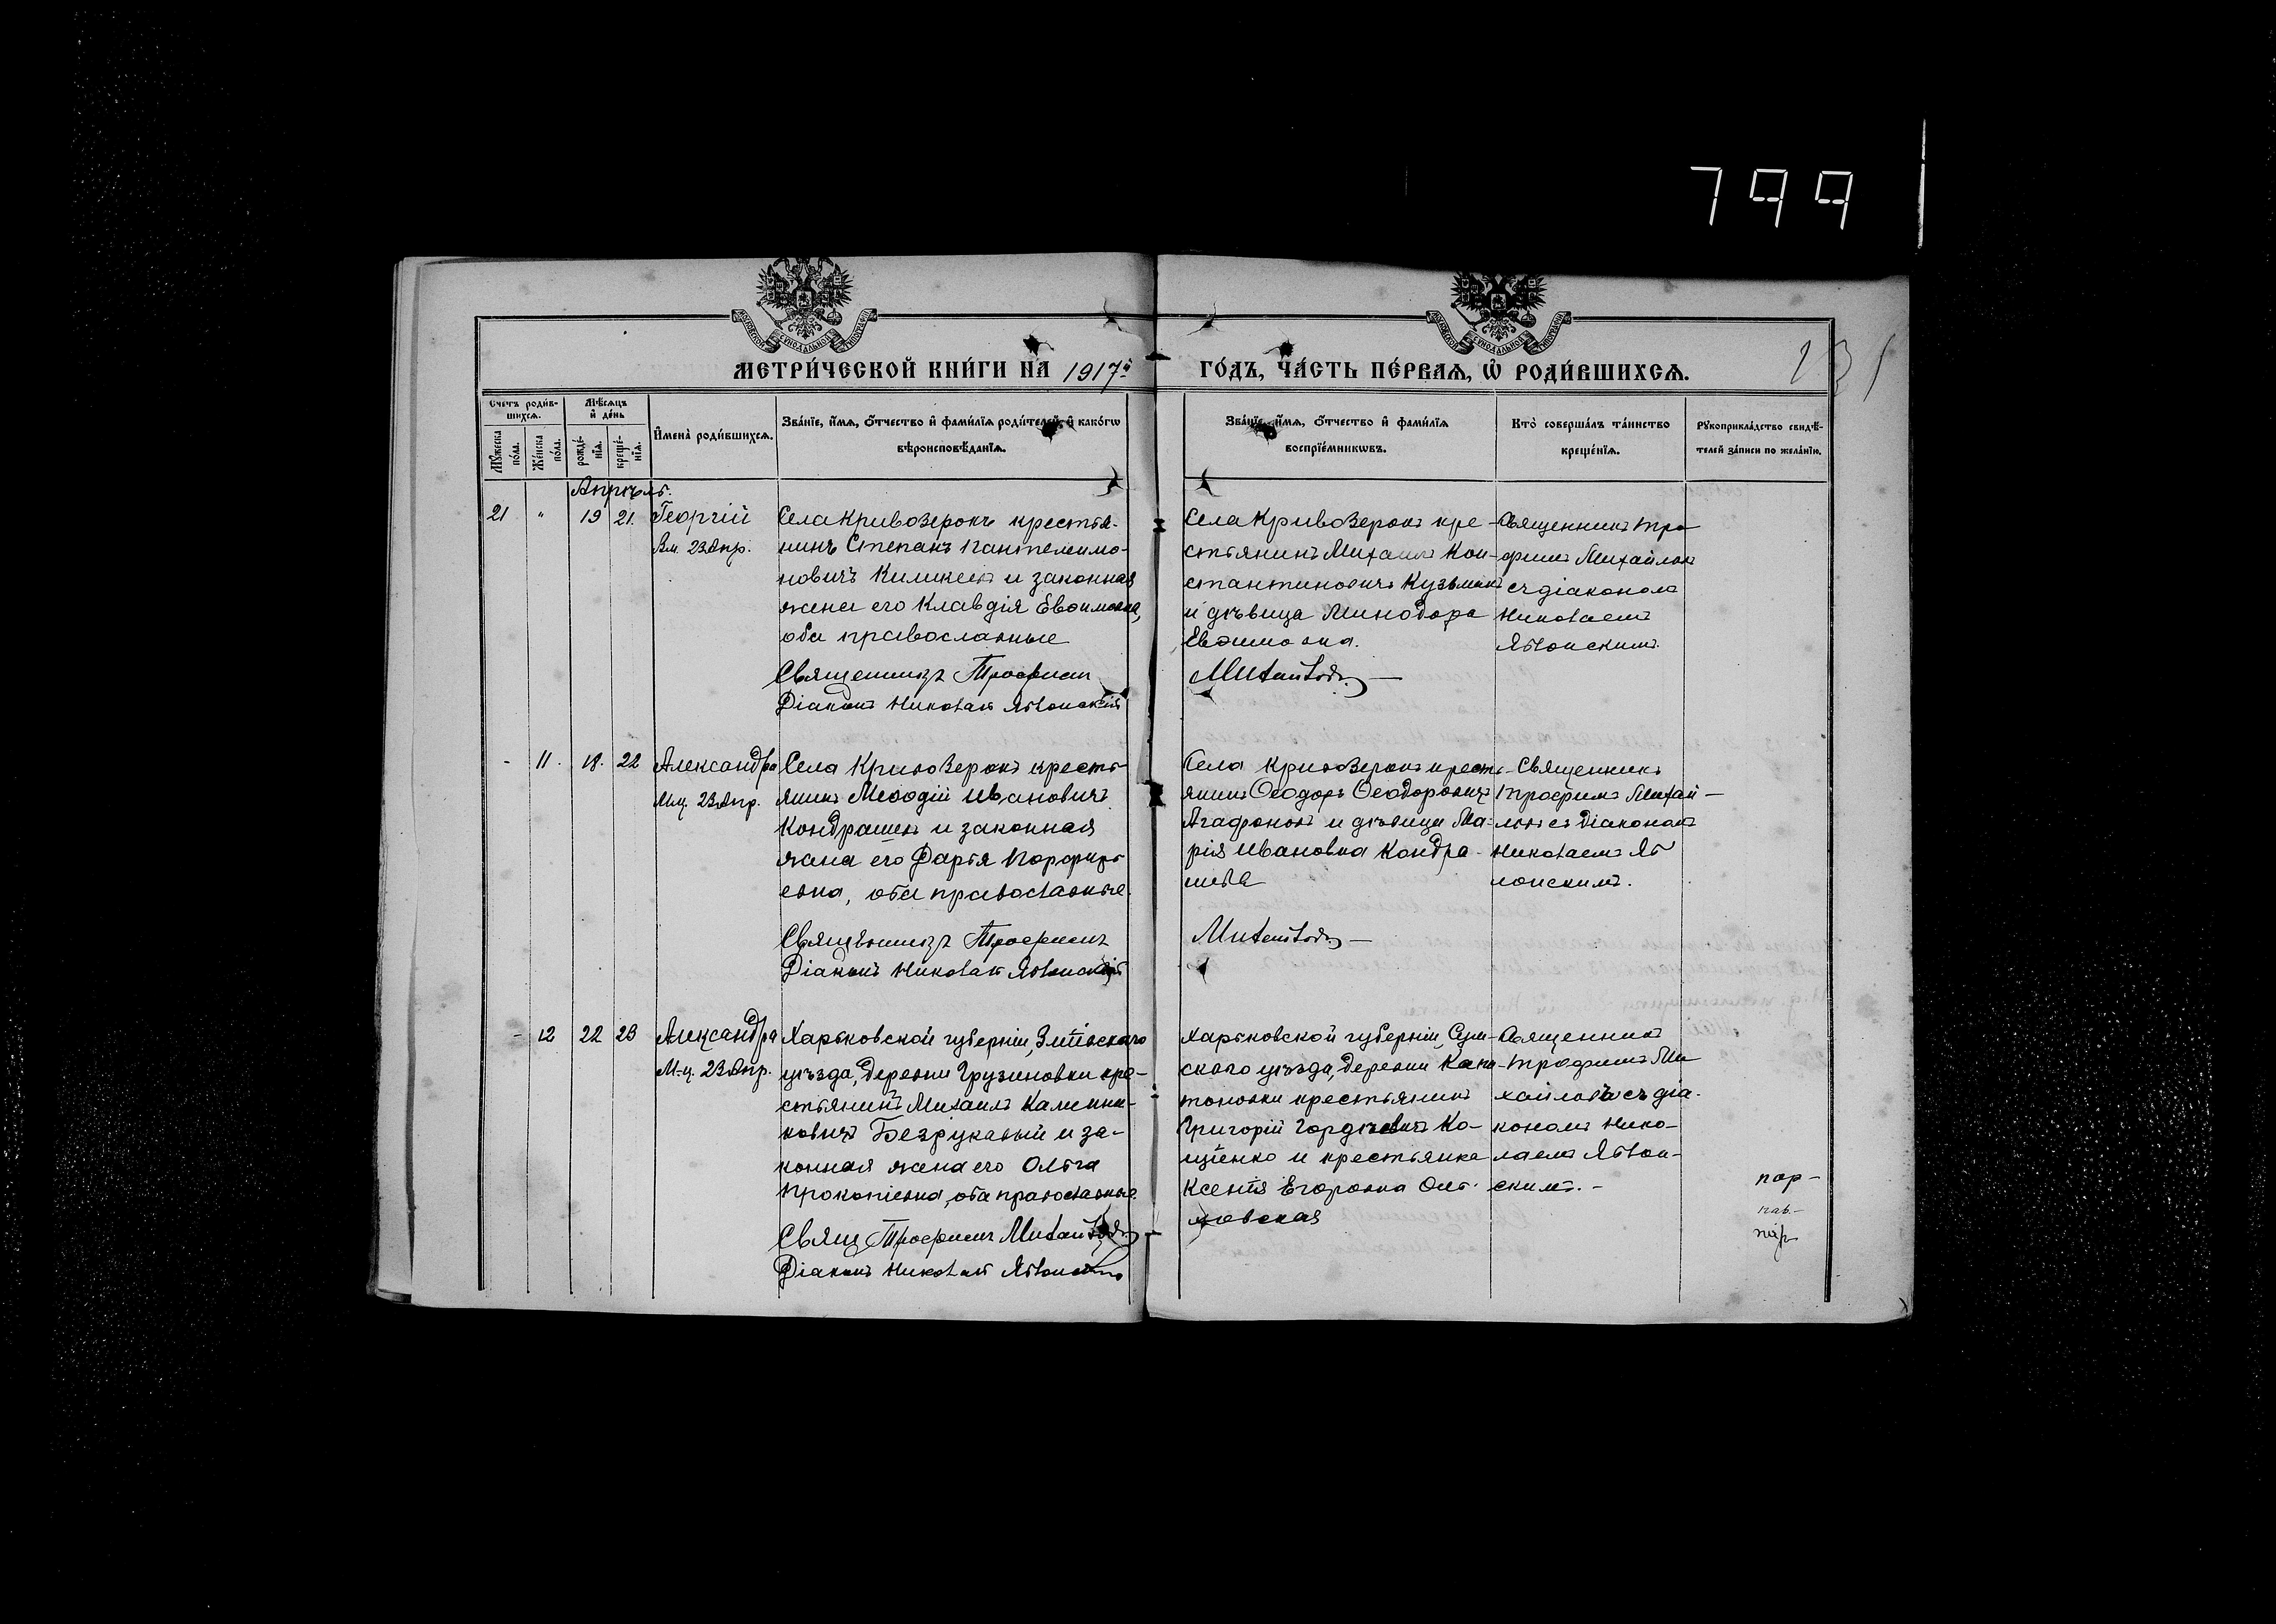 799
231
МЕТРИ́ЧЕСКОЙ КНИ́ГИ НА 1917й
ГО́ДЪ, ЧА́СТЬ ПЕ́РВАЯ, Ѡ҆ РОДИ́ВШИХСЯ.
Счетъ роди́в-
шихся.
Мѣ́сяцъ
и҆ де́нь
Мꙋ́жеска
по́ла.
Же́нска
по́ла.
рожде́-
нїѧ.
креще́-
нїѧ.
И҆мена̀ роди́вшихся.
Зва́нїе, и҆́мѧ, ѻ҆́тчество и҆ фами́лїѧ роди́телей, и҆ како́гѡ
вѣроисповѣ́данїѧ.
Зва́нїе, и҆́мѧ, ѻ҆́тчество и҆ фами́лїѧ
воспрїе́мникѡвъ.
Кто̀ соверша́лъ та́инство
креще́нїѧ.
Рꙋкоприкла́дство свидѣ́-
телей за́писи по жела́нїю.
Апрѣль.
21 " 19 21. Георгій
Вм. 23 Апр.
Села Кривозерокъ крестья-
нинъ Степанъ Пантелеимо-
новичъ Киликеевъ и законная
жена его Клавдія Евѳимовна,
оба православные
Священникъ Трофимъ
Діаконъ Николай Яблонскій
Села Кривозерокъ кре-
стьянинъ Михаилъ Кон-
стантиновичъ Кузьминъ
и дѣвица Минодора
Евѳимовна.
Михайловъ
Священникъ Тро-
фимъ Михайловъ
съ діакономъ
Николаемъ
Яблонскимъ.
- 11. 18. 22 Александра
Мц. 23 Апр.
Села Кривозерокъ кресть-
янинъ Меѳодій Ивановичъ
Кондрашевъ и законная
жена его Дарья Порфирь-
евна, оба православные.
Священникъ Трофимъ
Діаконъ Николай Яблонскій
Села Кривозерокъ кресть-
янинъ Ѳеодоръ Ѳеодоровичъ
Агафоновъ и дѣвица Ма-
рія Ивановна Кондра-
шева
Михайловъ
Священникъ
Трофимъ Михай-
ловъ съ діакономъ
Николаемъ Яб
лонскимъ.
- 12 22 23 Александра
М-ц. 23 Апр.
Харьковской губерніи, Зміевскаго
уѣзда, деревни Грузиновки кре-
стьянинъ Михаилъ Каленни-
ковичъ Безрукавый и за-
конная жена его Ольга
Прокопіевна, оба православные
Свящ Трофимъ Михайловъ
Діаконъ Николай Яблонскій
Харьковской губерніи, Сум-
скаго уѣзда, деревни Капи-
тоновки крестьянинъ
Григорій Гордѣевичъ Ко-
щіенко и крестьянка
Ксенія Егоровна
Священникъ
Трофимъ Ми
хайловъ съ діа-
кономъ Нико-
лаемъ Яблон-
скимъ. -